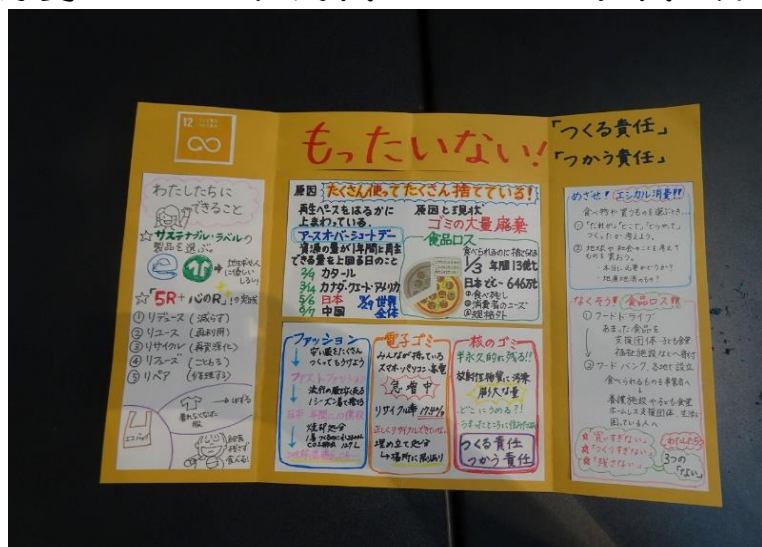 12
もったいない!
「つくる責任」
「つかう責任」
わたしたちに
できること
☆サステナブル・ラベルの
製品を選ぶ。
☆「5R+心のR」の実践
① リデュース (減らす)
② リユース (再利用)
③ リサイクル (再資源化)
④ リフューズ (ことわる)
⑤ リペア (修理する)
エコバッグ
原因 たくさん使ってたくさん捨てている!
再生ペースをはるかに
上まわっている
アースオーバーシュートデー
資源の量が1年間と再生
できる量を上回る日のこと
カタール
3/14 カナダ・UAE・アメリカ
5/6 日本
中国
7/29 世界
全体
原因と現状
ゴミの大量廃棄
食品ロス
食べられるのに捨てられる
1/3 年間13億t
日本だと→646万t
①食べ残し
②消費者のニーズ
③規格外
ファッション
安い服をたくさん
つくってもうけよう
ファストファッション
焼却処分
電子ゴミ
みんなが持っている
スマホ・パソコン・家電
急増中
リサイクル率 17.4%
正しくリサイクルできていない
埋め立て処分
↳場所に限りあり
核のゴミ
半永久的に残る!!
放射性物質に汚染
膨大な量
どこにうめる?!
つくる責任
つかう責任
めざせ!! エシカル消費!!
食べ物や買うものを選ぶとき…
①「だれが」「どこで」「どうやって」
つくったか考えよう。
② 地球や社会のことを考えて
ものを買おう。
・本当に必要かどうか?
・地産地消のもの?
なくそう!! 食品ロス!!
① フードドライブ
あまった食品を
支援団体・子ども食堂
福祉施設などへ寄付
② フードバンク 各地で設立
食べられるものを事業者へ
養護施設や子ども食堂
ホームレス支援団体、生活に
困っている人へ
☆「買いすぎない」
☆「つくりすぎない」
☆「残さない」
3つの
「ない」